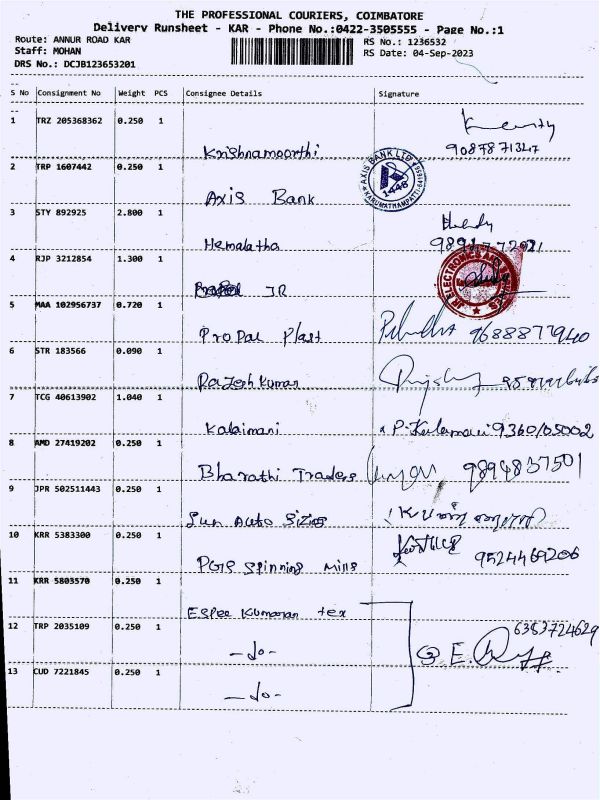 THE PROFESSIONAL COURIERS, COIMBATORE
Delivery Runsheet - KAR - Phone No.:0422-3505555 - Page No.:1
Route: ANNUR ROAD KAR
RS No.: 1236532
Staff: MOHAN
RS Date: 04-Sep-2023
DRS No.: DCJB123653201
S No Consignment No Weight PCS Consignee Details Signature
1 TRZ 205368362 0.250 1
9087871347
Krishnamoorthi
AXIS BANK LTD
1448
2 TRP 1607442 0.250 1
Axis Bank
3 STY 892925 2.800 1
Hemalatha
4 RJP 3212854 1.300 1
JR ELECTRONICS
JR
5 MAA 102956737 0.720 1
Propal Plast 9688877940
6 STR 183566 0.090 1
Rajesh Kumar
7 TCG 40613902 1.040 1
Kalaimani P. Kalamani 9360105002
8 AMD 27419202 0.250 1
Bharathi Traders 9894837501
9 JPR 502511443 0.250 1
Sun Auto
10 KRR 5383300 0.250 1
9524469206
Spinning Mills
11 KRR 5803570 0.250 1
Espee Kumaran tex
12 TRP 2035109 0.250 1
6383724629
- do -
E.
13 CUD 7221845 0.250 1
- do -